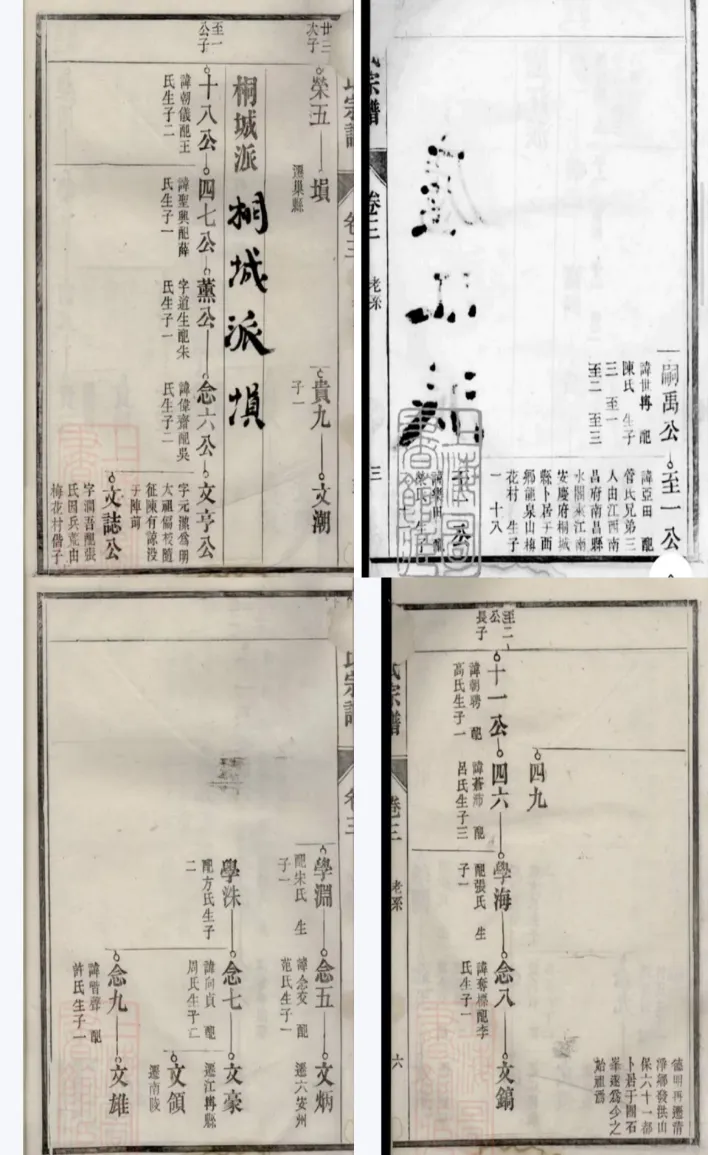 廿三
次子
榮五
墳
遷巢縣
貴九
子一
文潮
桐城派
桐城派墳
至一
公子
十八公
諱朝儀配王
氏生子二
四七公
諱聖興配薛
氏生子一
薰公
字道生配朱
氏生子一
念六公
諱偉齋配吳
氏生子二
文亨公
字元
太祖偏校隨
征陳有諒没
于陣前
文誌公
字潤吾配張
氏因兵荒由
梅花村偕子
宗譜
卷三
老系
三
嗣禹公
諱世冉 配
陳氏 生子
三 至一
至二 至三
至一公
諱亞田 配
管氏兄弟三
人由江西南
昌府南昌縣
安慶府桐城
縣卜居于西
鄉龍泉山梅
花村 生子
一 十八
氏宗譜
卷三
學淵
配宋氏 生
子一
念五
諱念交 配
范氏生子一
文炳
遷六安州
學洙
配方氏生子
二
念七
諱向貞 配
周氏生子二
文豪
文領
遷南陵
念九
許氏生子一
文雄
氏宗譜
卷三
老系
六
至二
公
長子
十一公
諱朝聘 配
高氏生子一
四六
呂氏生子三
四九
學海
配張氏 生
子一
念八
氏生子一
文鎬
德明再遷清
淨鄉發洪山
保六十一都
卜居于團石
始祖焉